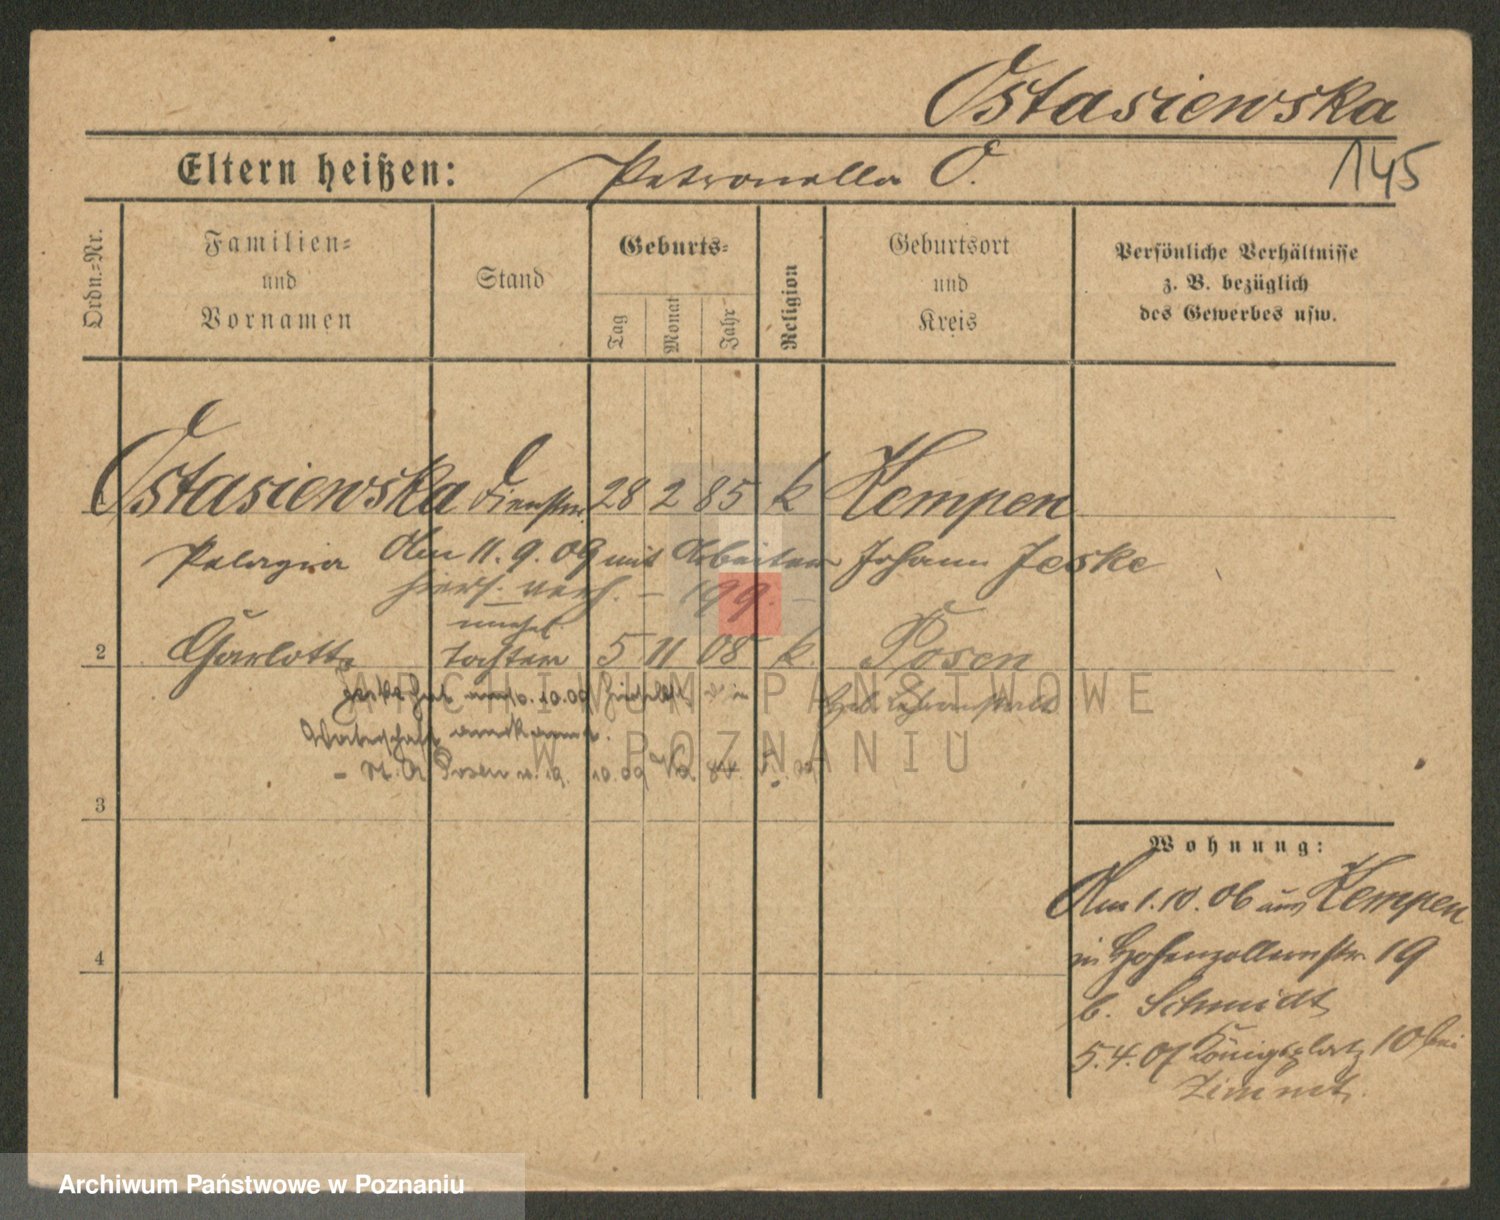 Ostasiewska
Eltern heißen: Petronella O.
145
Ordn.-Nr.
Familien-
und
Vornamen
Stand
Geburts-
Tag
Monat
Jahr
Religion
Geburtsort
und
Kreis
Persönliche Verhältnisse
z. B. bezüglich
des Gewerbes usw.
1 Ostasiewska Dienstm. 28 2 85 k Kempen
Pelagia Am 11. 9. 09 mit Arbeiter Johann Jeske
hier verh. – 199. –
unehel.
2 Charlotte Tochter 5 11 08 k. Posen
Jeske hat am 10.09 die
Vaterschaft anerkannt.
– St. A. Posen 10.09
3
4
Wohnung:
Am 1. 10. 06 aus Kempen
in Hohenzollernstr. 19
b. Schmidt
5. 4. 07 Königsplatz 10 bei
Zimmet.
ARCHIWUM PAŃSTWOWE
W POZNANIU
Archiwum Państwowe w Poznaniu